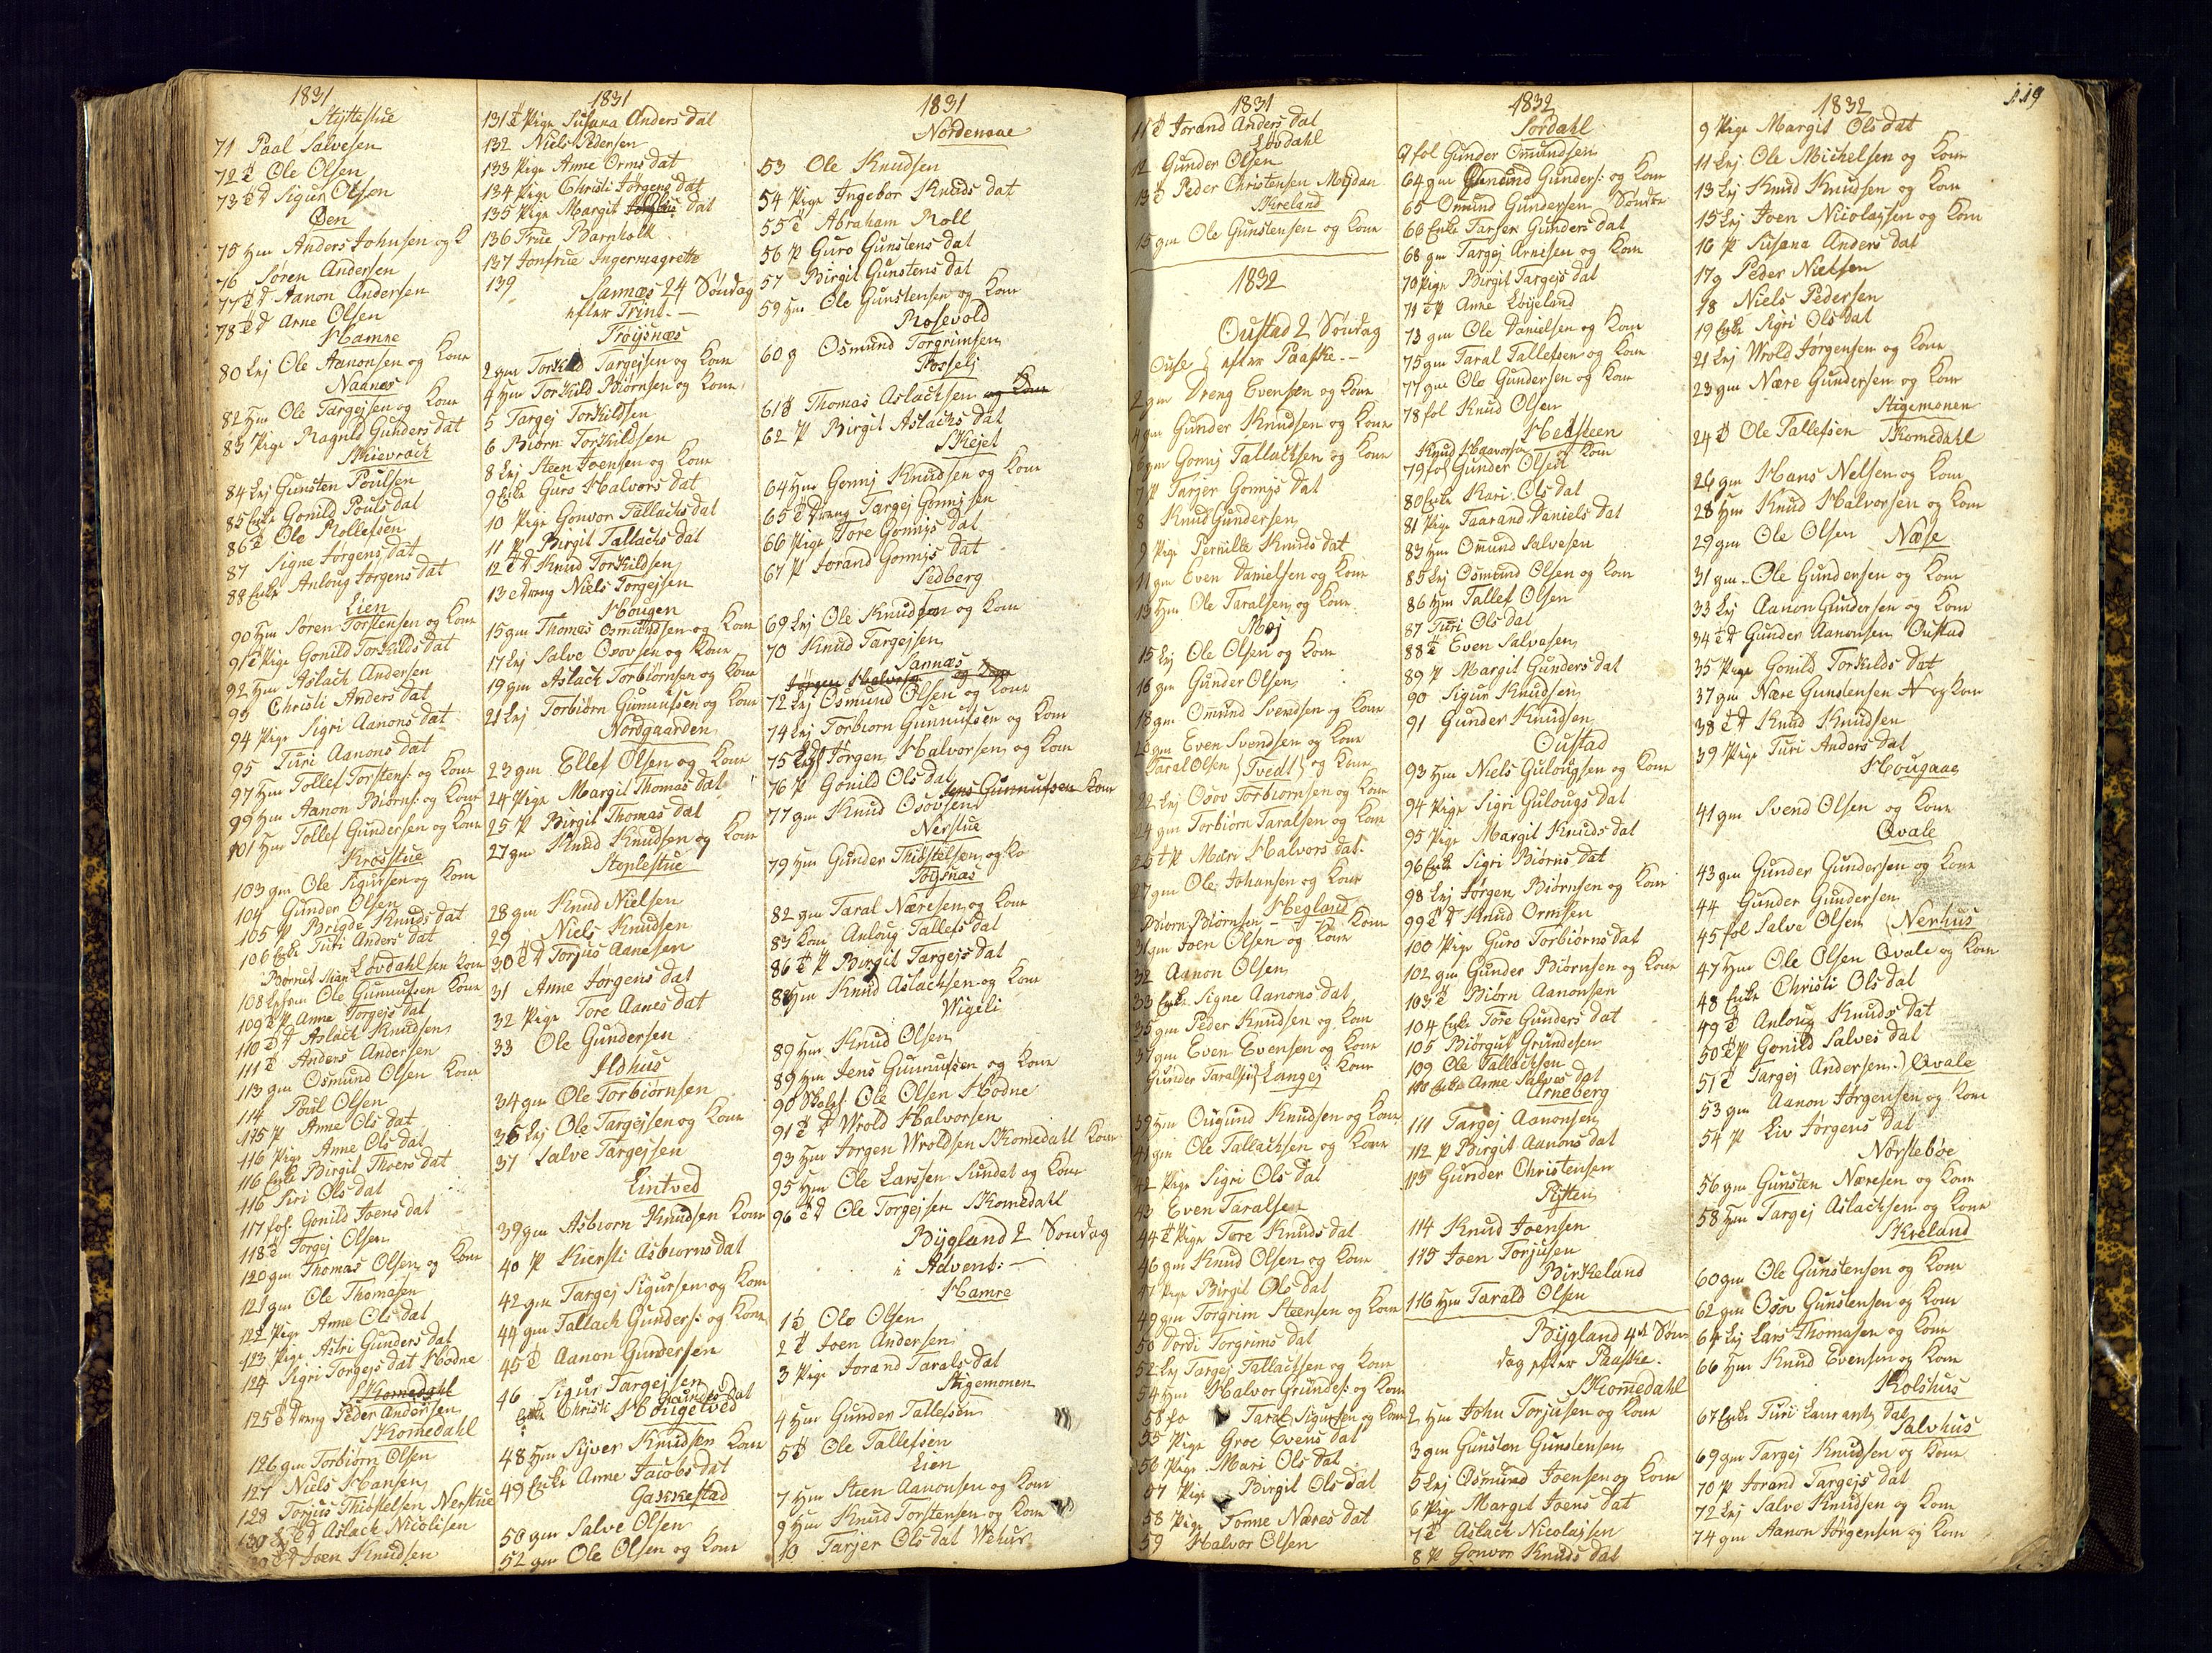 1831
Støttestue
71 Paal Salvesen
72 d Ole Olsen
73 d d Sigur Olsen
Øen
75 Hm Anders Johnsen og K
76 Søren Andersen
77 d d Aanon Andersen
78 d d Arne Olsen
Hamre
80 Lej Ole Aanonsen og Kone
Naanes
82 Hm Ole Targejsen og Kone
83 Pige Ragnild Gunders dat
Skievrach
84 Lej Gunsten Poulsen
85 Enke Gonild Pouls dat
86 d Ole Rollefsen
87 Signe Jørgens dat
88 Enke Anloug Jørgens dat
Lien
90 Hm Søren Torstensen og Kone
91 d Pige Gonild Torkilds dat
92 Hm Aslach Andersen
93 Christi Anders dat
94 Pige Sigri Aanons dat
95 Turi Aanons dat
97 Hm Tollef Torstens: og Kone
99 Hm Aanon Biørns: og Kone
101 Hm Tollef Gundersen og Kone
Krosstue
103 gm Ole Sigursen og Kone
104 Gunder Olsen
105 P Brigde Knuds dat
106 Enke Turi Anders dat
Løvdahl
108 Ole Gunnufsen Kone
109 d P Anne Torgejs dat
110 d d Aslach Knudsen
111 d Anders Andersen
113 gm Osmund Olsen Kone
114 Poul Olsen
115 P Anne Ols dat
116 Pige Anne Ols dat
116 Enke Birgit Thoers dat
116 Siri Ols dat
117 fol: Gonild Joens dat
118 d Torgej Olsen
120 gm Thomas Olsen og Kone
121 gm Ole Thomasen
122 Pige Anne Ols dat
123 Pige Astri Gunders dat
124 Sigri Torgejs dat Hodne
Skomedahl
125 d Dreng Peder Andersen
Skomedahl
126 gm Torbiørn Olsen
127 Niels Hansen
128 Torjus Thistelsen Nerstue
130 d d Aslach Nicolisen
Joen Knudsen
1831
131 d Pige Susana Anders dat
132 Niels Pedersen
133 Pige Anne Orms dat
134 Pige Christi Jørgens dat
135 Pige Margit dat
136 Frue Barnholt
137 Jonfrue Ingermagrette
139 Sannæs 24 Søndag
efter Trint.
Frøysnæs
2 gm Torkild Targejsen og Kone
4 Hm Torkild Biørnsen og Kone
5 Targej Torkildsen
6 Biørn Torkildsen
8 Lej Steen Joensen og Kone
9 Enke Guro Halvors dat
10 Pige Gonvor Tallachs dat
11 P Birgit Tallachs dat
12 d d Knud Torkildsen
13 Dreng Niels Torgejsen
Hougen
15 gm Thomas Osmundsen og Kone
17 Lej Salve Osovsen og Kone
19 gm Aslach Torbiørnsen og Kone
21 Lej Torbiørn Gunnufsen og Kone
Nordgaarden
23 gm Ellef Olsen og Kone
24 Pige Margit Thomas dat
25 P Birgit Thomas dat
27 gm Knud Knudsen og Kone
Steplestue
28 gm Knud Nielsen
29 Niels Knudsen
30 d d Torjus Aanesen
31 Anne Jørgens dat
32 Pige Tore Aanes dat
33 Ole Gundersen
Ildhus
34 gm Ole Torbiørnsen
36 Lej Ole Targejsen og Kone
37 Salve Targejsen
Lintved
39 gm Asbiorn Knudsen Kone
40 P Kiersti Asbiorns dat
42 gm Targej Sigursen og Kone
44 gm Tallach Gunders: og Kone
45 d Aanon Gundersen
46 Sigur Targejsen
Enke Christi dat
Hougetved
48 Hm Syver Knudsen Kone
49 Enke Anne Jacobs dat
Gakkestad
50 gm Salve Olsen
52 gm Ole Olsen og Kone
1831
Nordenaae
53 Ole Knudsen
54 Pige Ingebor Knuds dat
55 d Abraham Roll
56 P Guro Gunstens dat
57 Birgit Gunstens dat
59 Hm Ole Gunstensen og Kone
Rosevold
60 g Osmund Torgrimsen
61 d Thomas Aslachsen og Kone
62 P Birgit Aslachs dat
Skejet
64 Hm Gonnj Knudsen og Kone
65 d Dreng Targej Gonnjsen
66 Pige Tore Gonnjs dat
67 P Jorand Gonnjs dat
Sedberg
69 Lej Ole Knudsen og Kone
70 Knud Targejsen
Sannæs
Jørgen Halvors og Kone
72 Lej Osmund Olsen og Kone
74 Lej Torbiorn Gunnufsen og Kone
75 Jørgen Halvorsen og Kone
76 P Gonild Ols dat
Jens Gunnufsen Kone
77 gm Knud Osovsen
Nerstue
79 Hm Gunder Thistelsen og Ko
Frøjsnæs
82 gm Taral Næresen og Kone
83 Kone Anloug Tallefs dat
86 d P Birgit Targejs dat
88 Hm Knud Aslachsen og Kone
Wigeli
89 Hm Knud Olsen
89 Hm Jens Gunnufsen og Kone
90 Skolef. Ole Olsen Hodne
91 d d Wrold Halvorsen
93 Hm Jørgen Wroldsen Skomedahl Kone
95 Hm Ole Larssen Sundet og Kone
96 d d Ole Torgejsen Skomedahl
Bygland 2 Søndag
i Advent.
Hamre
1 d Ole Olsen
2 d Joen Andersen
3 Pige Jorand Tarals dat
Stigemonen
4 Hm Gunder Tallefsen
5 d Ole Tallefsen
Lien
7 Hm Steen Aanonsen og Kone
9 Hm Knud Torstensen og Kone
10 Tarjer Ols dat Wehus
119
1831
11 d Jorand Anders dat
Løvdahl
12 Gunder Olsen
13 d Peder Christensen Mojdan
Skreland
15 gm Ole Gunstensen og Kone
1832
Oustad 2 Søndag
Ouse efter Paaske.
2 gm Dreng Evensen og Kone
4 gm Gunder Knudsen og Kone
6 gm Gonnj Tallachsen og Kone
7 P Tarjer Gonnjs dat
8 Knud Gundersen
9 Pige Pernille Knuds dat
11 gm Even Danielsen og Kone
13 Hm Ole Taralsen og Kone
Moj
15 Lej Ole Olsen og Kone
16 gm Gunder Olsen
18 gm Omund Svendsen og Kone
20 gm Even Svendsen og Kone
Taral Olsen Tvedt og Kone
22 Lej Osov Torbiornsen og Kone
24 gm Torbiørn Taralsen og Kone
25 d P Mari Halvors dat
27 gm Ole Johansen og Kone
Hegland
Biorn Biørnsen Kone
31 gm Joen Olsen og Kone
32 Aanon Olsen
33 Enke Signe Aanons dat
35 gm Peder Knudsen og Kone
37 gm Even Evensen og Kone
Gunder Taralsen Langej Kone
39 Hm Ougund Knudsen og Kone
41 gm Ole Tallachsen og Kone
42 Pige Sigri Ols dat
43 Even Taralsen
44 d Pige Tore Knuds dat
46 gm Knud Olsen og Kone
47 Pige Birgit Ols dat
49 gm Torgrim Steensen og Kone
50 Dordi Torgrims dat
52 Lej Targej Tallachsen og Kone
54 Hm Halvor Grundes: og Kone
58 fo Taral Sigursen og Kone
55 Pige Groe Evens dat
56 Pige Mari Ols dat
57 Pige Birgit Ols dat
58 Pige Tonne Næres dat
59 Halvor Olsen
1832
Sordahl
fol Gunder Omundsen
64 gm Omund Gunders: og Kone
65 Omund Gundersen Søndre
66 Enke Tarjer Gunders dat
68 gm Targej Arnesen og Kone
70 Pige Birgit Targejs dat
71 d P Anne Løyeland
73 gm Ole Danielsen og Kone
75 gm Taral Tallefsen og Kone
77 gm Ole Gundersen og Kone
78 fol Knud Olsen
Hedsteen
Knud Haavorsen Kone
79 fol Gunder Olsen
80 Enke Kari Ols dat
81 Pige Taarand Daniels dat
83 Hm Omund Salvesen
85 Lej Osmund Olsen og Kone
86 Hm Tallef Olsen
87 Turi Ols dat
88 d Even Salvesen
89 P Margit Gunders dat
90 Sigur Knudsen
91 Gunder Knudsen
Oustad
93 Hm Niels Gulougsen og Kone
94 Pige Sigri Gulougs dat
95 Pige Margit Knuds dat
96 Enke Sigri Biørns dat
98 Lej Jørgen Biørnsen og Kone
99 d d Knud Ormsen
100 Pige Guro Torbiørns dat
102 gm Gunder Biørnsen og Kone
103 d Biørn Aanonsen
104 Enke Tore Gunders dat
105 Biørgul Grundesen
109 Ole Tallachsen
110 Enke Anne Salves dat
Arneberg
111 Targej Aanonsen
112 P Birgit Aanons dat
113 Gunder Christensen
Flotten
114 Knud Joensen
115 Joen Torjusen
Birkeland
116 Hm Tarald Olsen
Bygland 4de Søn
dag efter Paaske.
Skomedahl
2 Hm John Torjusen og Kone
3 gm Gunsten Gunstensen
5 Lej Osmund Joensen og Kone
6 Pige Margit Joens dat
7 d Aslach Nicolajsen
8 P Gonvor Knuds dat
1832
9 Pige Margit Ols dat
11 Lej Ole Michelsen og Kone
13 Lej Knud Knudsen og Kone
15 Lej Joen Nicolajsen og Kone
16 P Susana Anders dat
17 g Peder Nielsen
18 Niels Pedersen
19 Enke Sigri Ols dat
21 Lej Wrold Jørgensen og Kone
23 gm Nære Gundersen og Kone
Stigemonen
24 d Ole Tallefsen Skomedahl
26 gm Hans Nelsen og Kone
28 Hm Knud Halvorsen og Kone
29 gm Ole Olsen Næse
31 gm Ole Gundersen og Kone
33 Lej Aanon Gundersen og Kone
34 d d Gunder Aanonsen Oustad
35 Pige Gonild Torkilds dat
37 gm Nære Gunstensen N og Kone
38 d d Knud Knudsen
39 Pige Turi Anders dat
Hougaas
41 gm Svend Olsen og Kone
Qvale
43 gm Gunder Gundersen og Kone
44 Gunder Gundersen
45 fol Salve Olsen Nerhus
47 Hm Ole Olsen Qvale og Kone
48 Enke Christi Ols dat
49 d Anloug Knuds dat
50 d P Gonild Salves dat
51 d Targej Andersen Qvale
53 gm Aanon Jørgensen og Kone
54 P Liv Jørgens dat
Nørstebøe
56 gm Gunsten Næresen og Kone
58 Hm Targej Aslachsen og Kone
Skreland
60 gm Ole Gunstensen og Kone
62 gm Osov Gunstensen og Kone
64 Lej Lars Thomasen og Kone
66 Hm Knud Evensen og Kone
Kolshus
67 Enke Turi Laurants dat
Salvhus
69 gm Targej Knudsen og Kone
70 P Jorand Targejs dat
72 Lej Salve Knudsen og Kone
74 gm Aanon Jørgensen og Kone